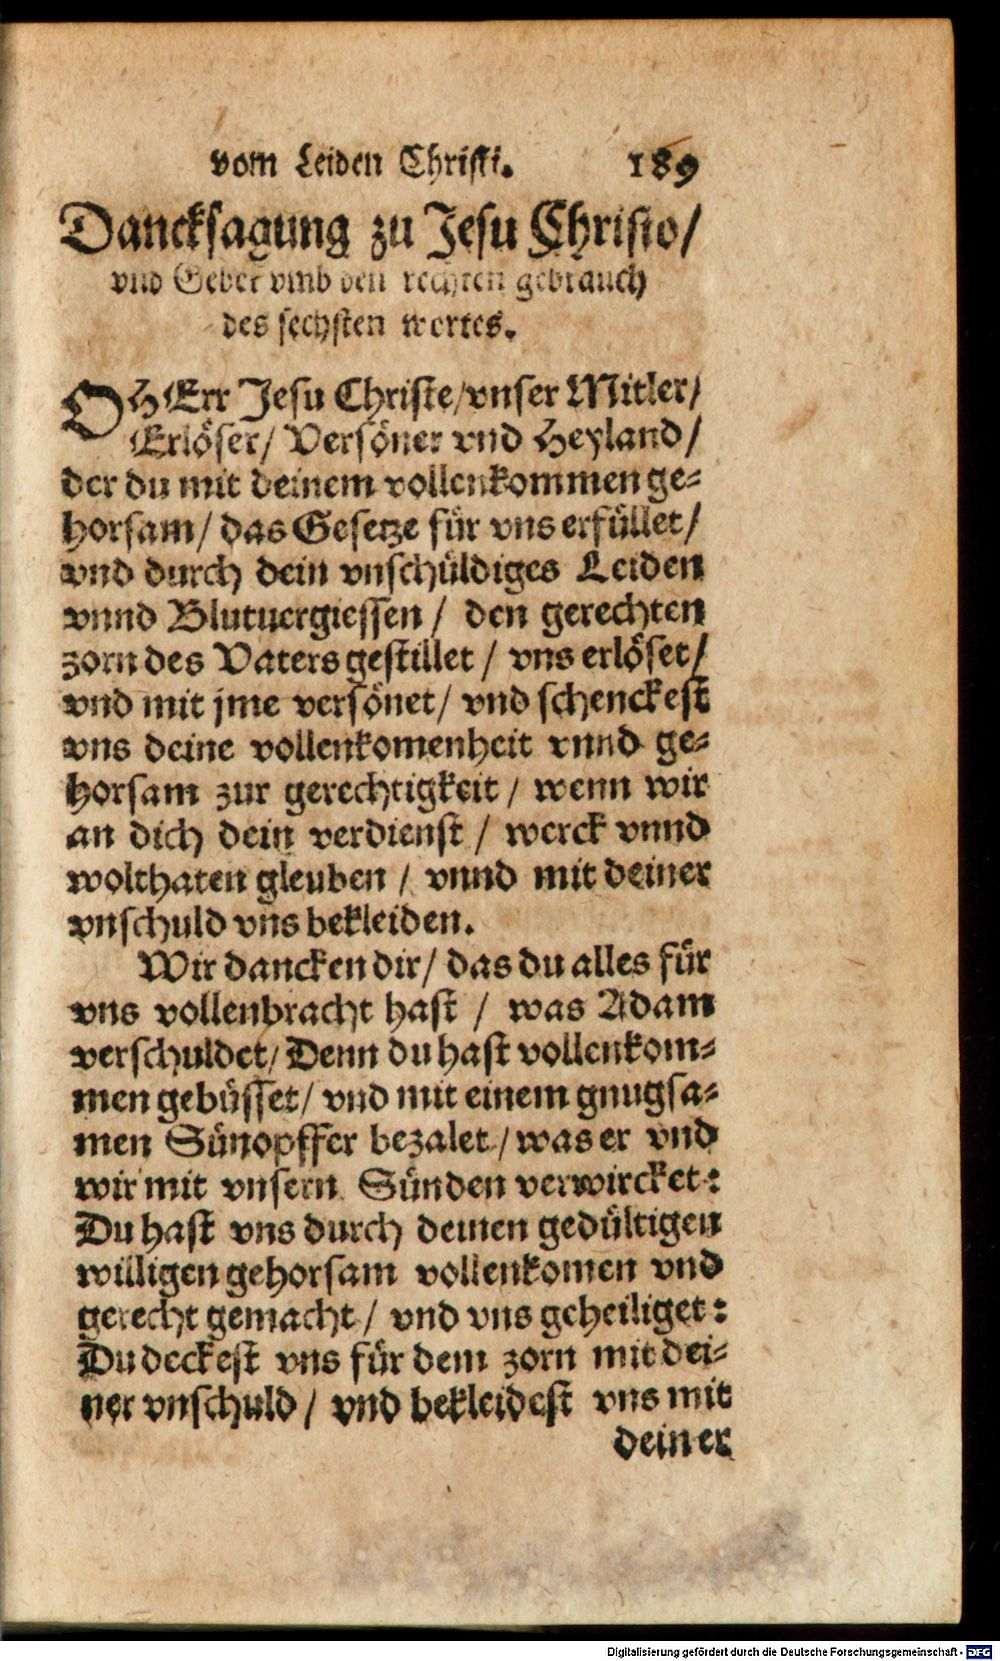 vom Leiden Christi. 189
Dancksagung zu Jesu Christo/
vnd Gebet vmb den rechten gebrauch
des sechsten wortes.
O HErr Jesu Christe/vnser Mitler/
Erlöser/ Versöner vnd Heyland/
der du mit deinem vollenkommen ge-
horsam/ das Gesetze für vns erfüllet/
vnd durch dein vnschüldiges Leiden
vnnd Blutuergiessen/ den gerechten
zorn des Vaters gestillet/ vns erlöset/
vnd mit jme versönet/ vnd schenckest
vns deine vollenkomenheit vnnd ge-
horsam zur gerechtigkeit/ wenn wir
an dich dein verdienst/ werck vnnd
wolthaten gleuben/ vnnd mit deiner
vnschuld vns bekleiden.
Wir dancken dir/ das du alles für
vns vollenbracht hast/ was Adam
verschuldet/ Denn du hast vollenkom-
men gebüsset/ vnd mit einem gnugsa-
men Sünopffer bezalet/ was er vnd
wir mit vnsern Sünden verwircket:
Du hast vns durch deinen gedültigen
willigen gehorsam vollenkomen vnd
gerecht gemacht/ vnd vns geheiliget:
Du deckest vns für dem zorn mit dei-
ner vnschuld/ vnd bekleidest vns mit
deiner
Digitalisierung gefördert durch die Deutsche Forschungsgemeinschaft - DFG